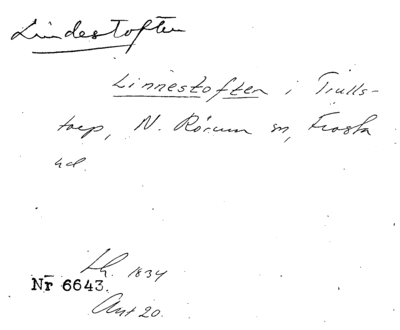 Lindestoften
Linnestoften i Trulls-
torp, N. Rörum sn, Frosta
hd.
Lh. 1834
Nr 6643.
Ant 20.